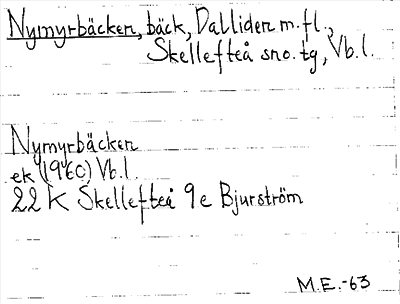 Nymyrbäcken, bäck, Dalliden m.fl.,
Skellefteå sno.tg, Vb.l.
Nymyrbäcken
ek (1960) Vb.l.
22 K Skellefteå 9e Bjurström
M.E.-63